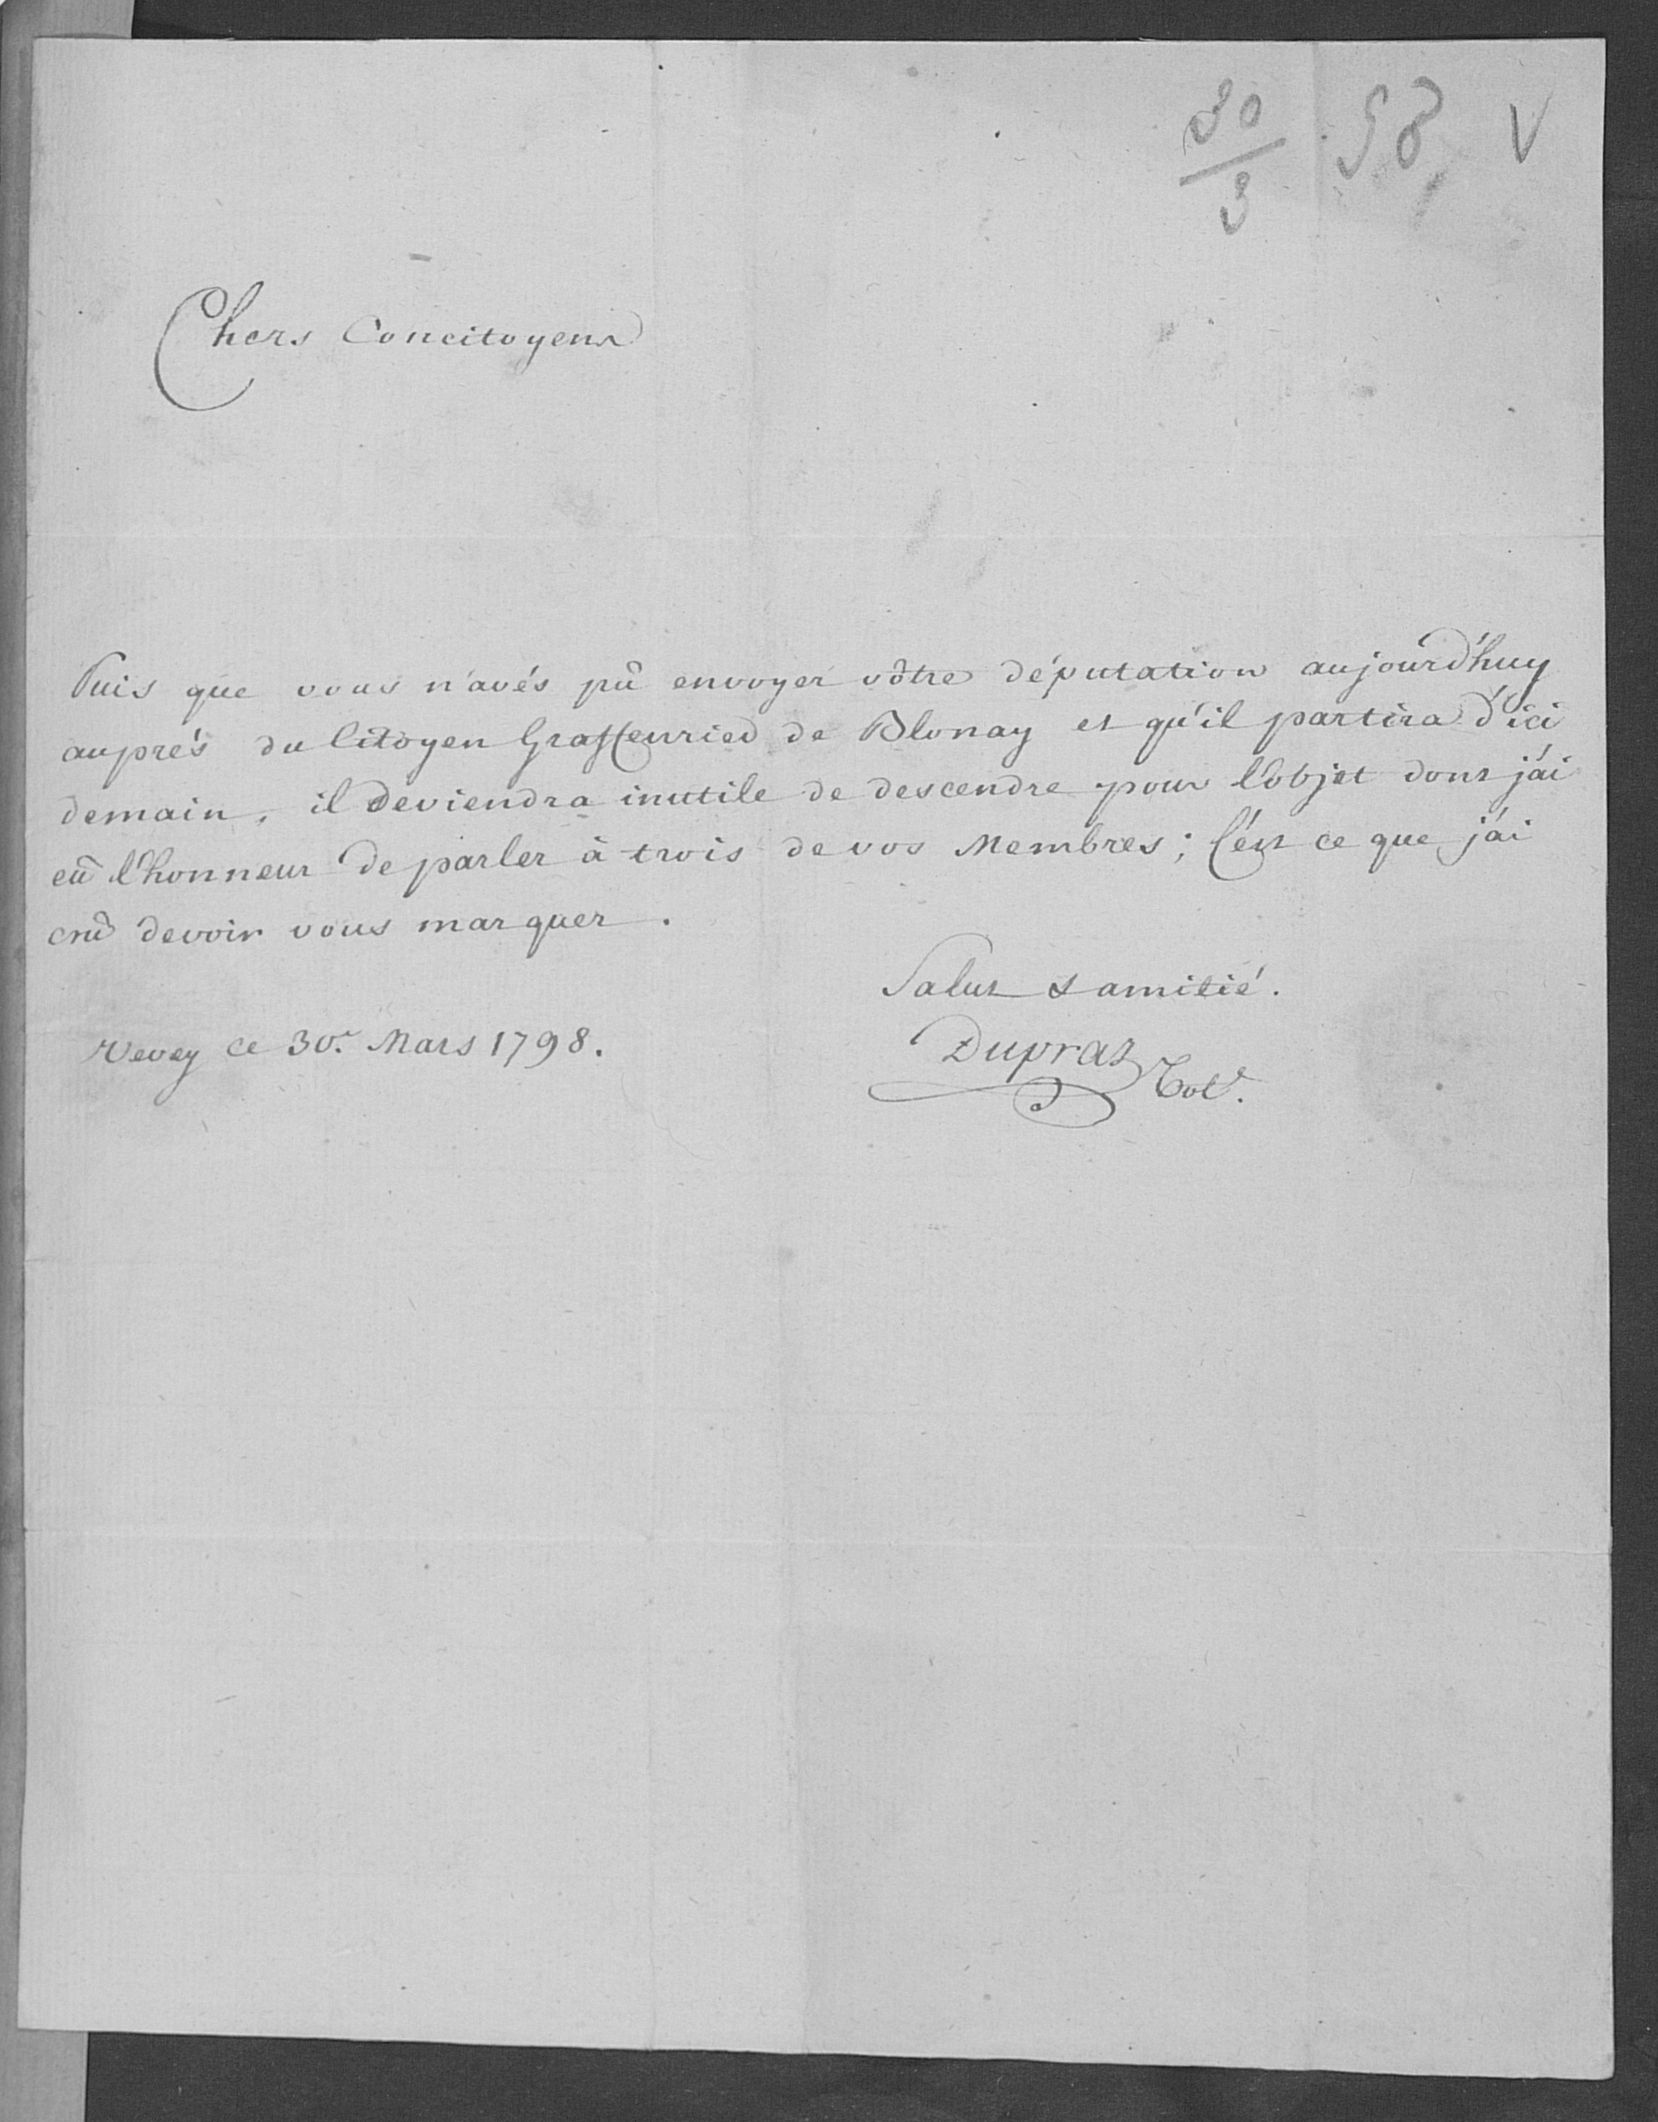 30/3 98 V
Chers Concitoyens
Puis que vous n'avés pû envoyer vôtre députation aujourd'huy
auprés du Citoyen Graffenried de Blonay et qu'il partira d'ici
demain, il deviendra inutile de descendre pour l'objet dont j'ai
eû l'honneur de parler à trois de vos Membres; C'est ce que j'ai
crû devoir vous marquer.
Salut & amitié.
Vevey ce 30.e Mars 1798.
Dupraz